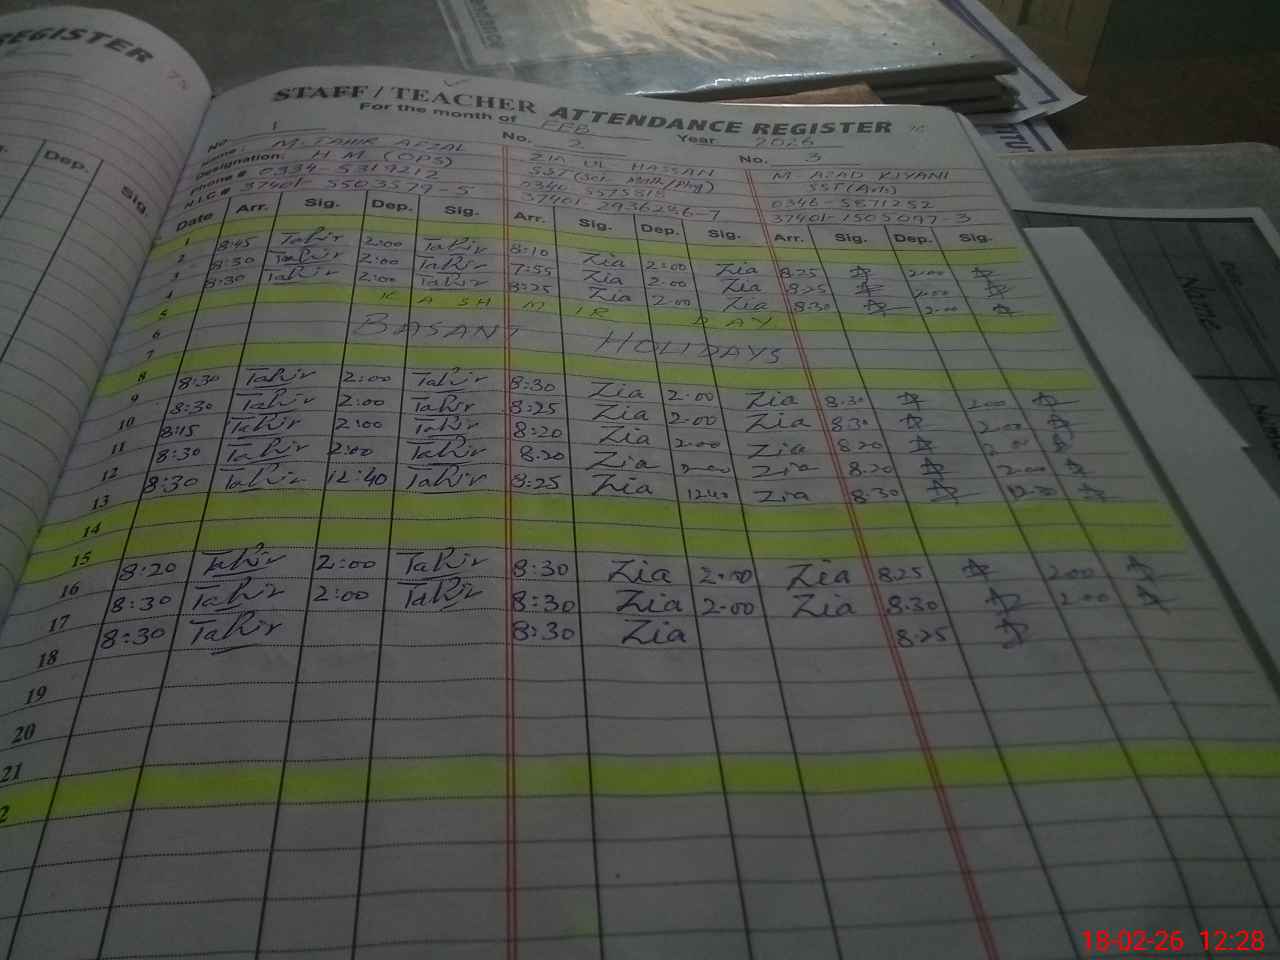 REGISTER
STAFF / TEACHER ATTENDANCE REGISTER
For the month of FEB Year 2026
No 1 No. 2 No. 3
Name: M. TAHIR AFZAL ZIA UL HASSAN M AZAD KIYANI
Designation: H M (OPS) SST (Sci. Math/Phy) SST (Arts)
Phone # 0334-5319212 0346-5871252
N.I.C # 37401-5503579-5 37401-2936246-7 37401-1505097-3
Date Arr. Sig. Dep. Sig. Arr. Sig. Dep. Sig. Arr. Sig. Dep. Sig.
1
2 8:45 Tahir 2:00 Tahir 8:10 Zia 2:00 Zia 8:25 2:00
3 8:30 Tahir 2:00 Tahir 7:55 Zia 2:00 Zia 8:25 2:00
4 8:30 Tahir 2:00 Tahir 8:25 Zia 2:00 Zia 8:30 2:00
5 KASHMIR DAY
6 BASANT HOLIDAYS
7
8
9 8:30 Tahir 2:00 Tahir 8:30 Zia 2:00 Zia 8:30 2:00
10 8:30 Tahir 2:00 Tahir 8:25 Zia 2:00 Zia 8:30 2:00
11 8:15 Tahir 2:00 Tahir 8:20 Zia 2:00 Zia 8:20 2:00
12 8:30 Tahir 2:00 Tahir 8:20 Zia 2:00 Zia 8:20 2:00
13 8:30 Tahir 12:40 Tahir 8:25 Zia 12:40 Zia 8:30 12:30
14
15
16 8:20 Tahir 2:00 Tahir 8:30 Zia 2:00 Zia 8:25 2:00
17 8:30 Tahir 2:00 Tahir 8:30 Zia 2:00 Zia 8:30 2:00
18 8:30 Tahir 8:30 Zia 8:25
19
20
21
2
Dep. Sig.
Name
18-02-26 12:28